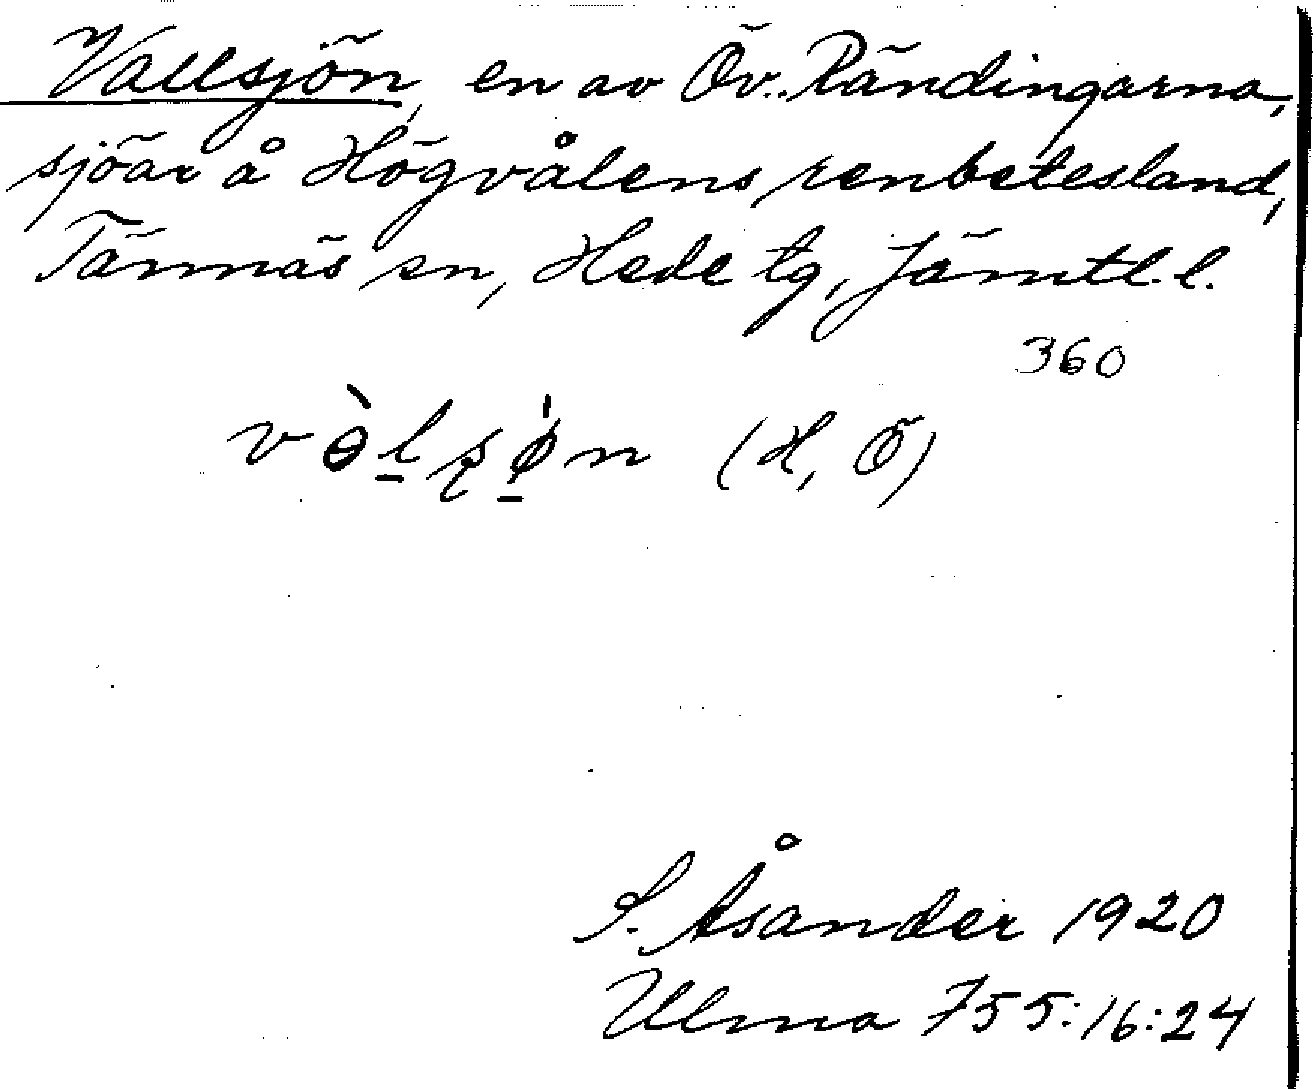 Vallsjön, en av Öv. Rändingarna,
sjöar å Högvålens renbetesland,
Tännäs sn, Hede tg, Jämtl. l.
360
(H, Ö)
S. Åsander 1920
Ulma 755:16:24